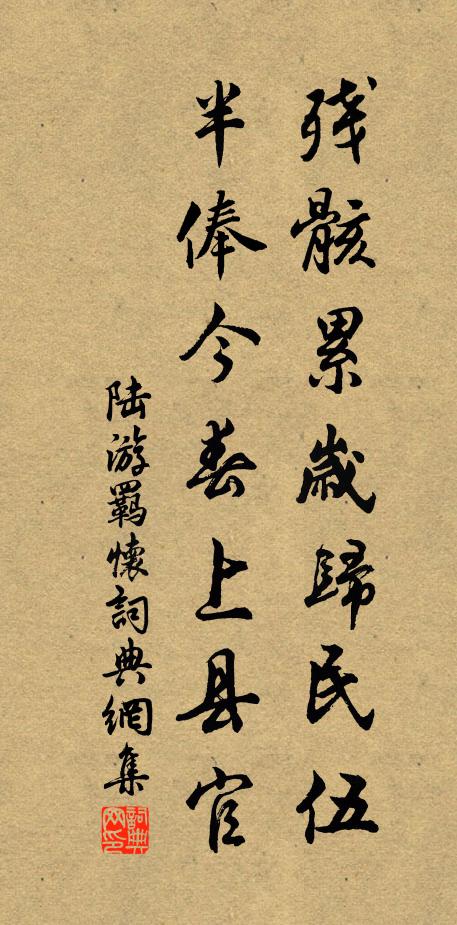 残骸累歲歸民伍
半俸今春上县官
陆游羈懷詞典網集
詞典
网印